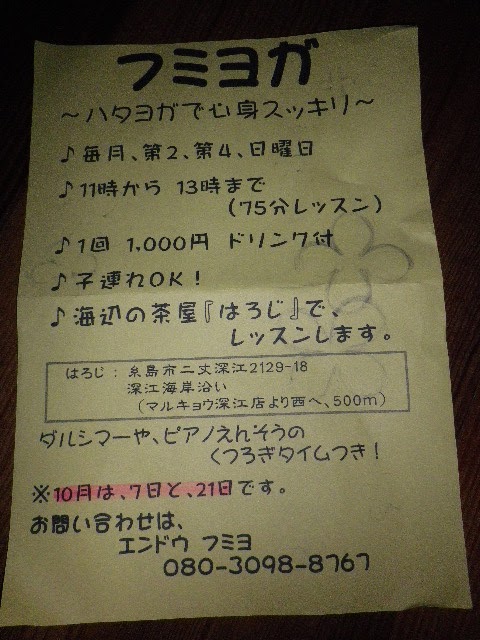 フミヨガ
～ハタヨガで心身スッキリ～
♪毎月、第2、第4、日曜日
♪11時から 13時まで
(75分レッスン)
♪1回 1,000円 ドリンク付
♪子連れOK！
♪海辺の茶屋『はろじ』で、
レッスンします。
はろじ：糸島市二丈深江2129-18
深江海岸沿い
(マルキョウ深江店より西へ、500m)
ダルシマーや、ピアノえんそうの
くつろぎタイムつき！
※10月は、7日と、21日です。
お問い合わせは、
エンドウ フミヨ
080-3098-8767